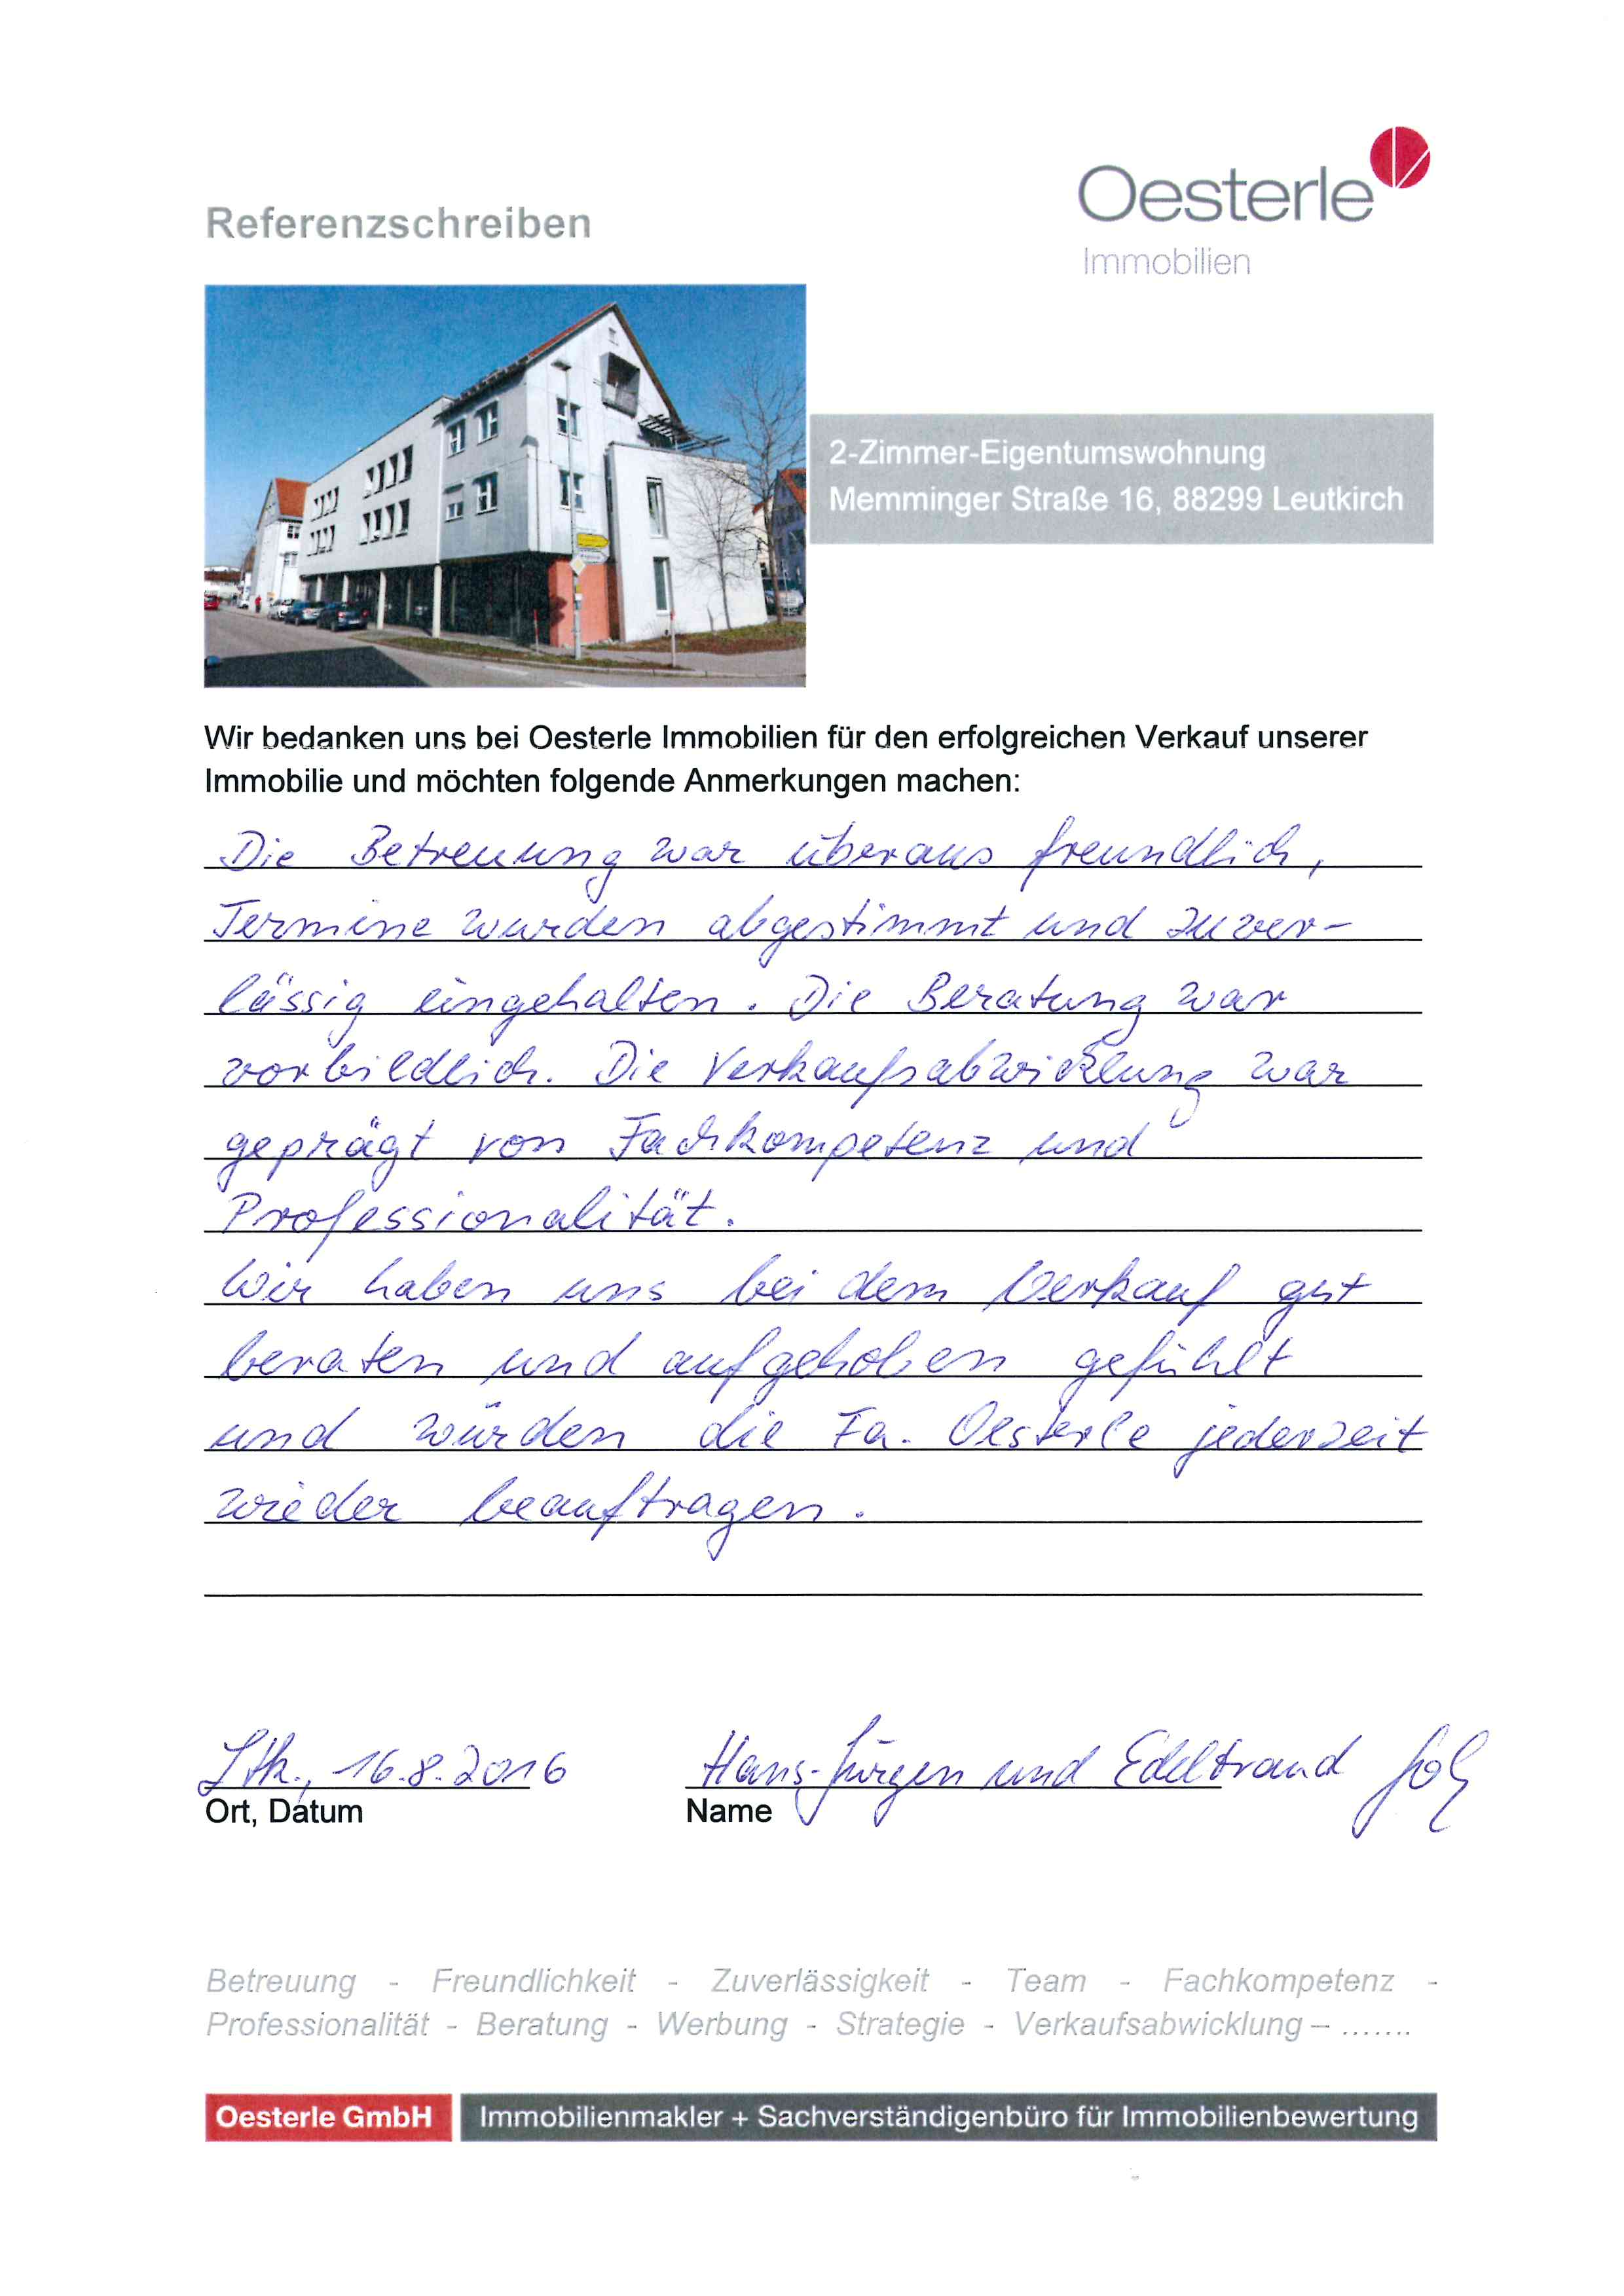 Oesterle
Referenzschreiben
Immobilien
2-Zimmer-Eigentumswohnung
Memminger Straße 16, 88299 Leutkirch
Wir bedanken uns bei Oesterle Immobilien für den erfolgreichen Verkauf unserer
Immobilie und möchten folgende Anmerkungen machen:
Die Betreuung war überaus freundlich,
Termine wurden abgestimmt und zuver-
lässig eingehalten. Die Beratung war
vorbildlich. Die Verkaufsabwicklung war
geprägt von Fachkompetenz und
Professionalität.
Wir haben uns bei dem Verkauf gut
beraten und aufgehoben gefühlt
und würden die Fa. Oesterle jederzeit
wieder beauftragen.
Ltk., 16.8.2016
Hans-Jürgen und Edeltraud
Ort, Datum
Name
Betreuung - Freundlichkeit - Zuverlässigkeit - Team - Fachkompetenz -
Professionalität - Beratung - Werbung - Strategie - Verkaufsabwicklung – .......
Oesterle GmbH
Immobilienmakler + Sachverständigenbüro für Immobilienbewertung